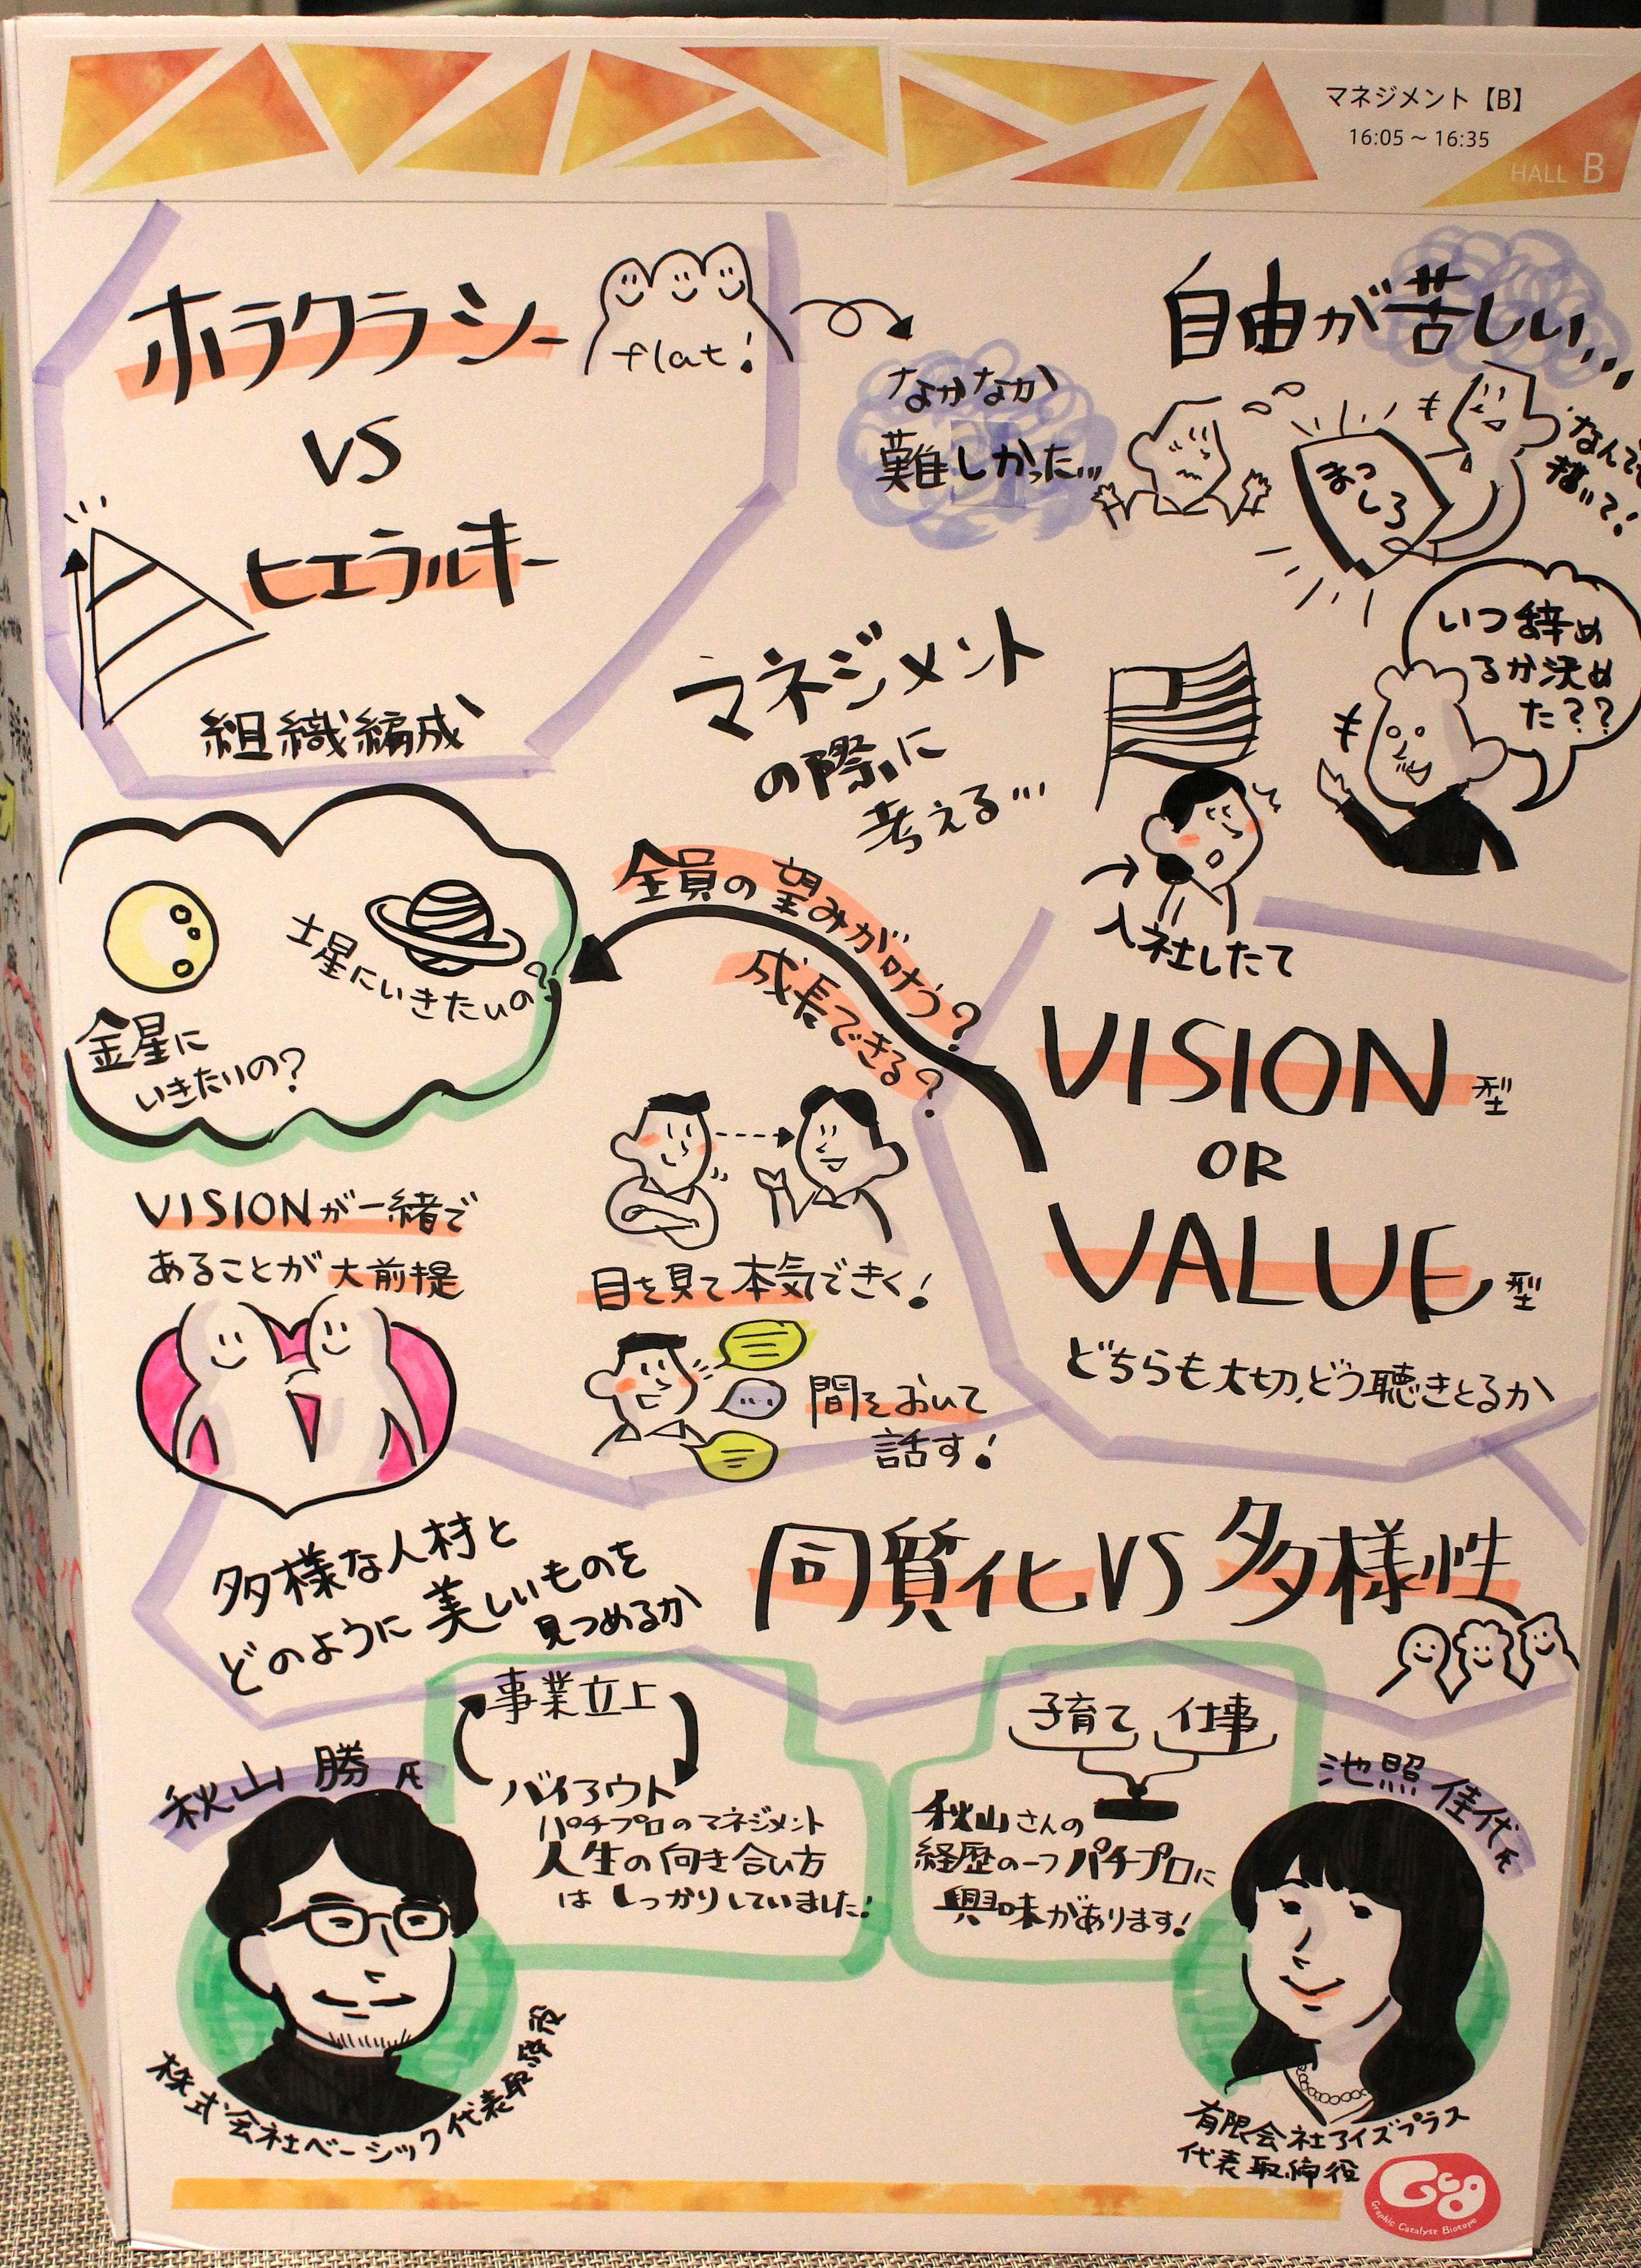 マネジメント【B】
16:05～16:35
HALL B
ホラクラシー
flat!
VS
ヒエラルキー
組織編成
なかなか
難しかった…
自由が苦しい…
まっ
しろ
描いて!
いつ辞め
るか決め
た??
入社したて
マネジメント
の際に
考える…
全員の望みが叶う?
成長できる?
土星にいきたいの?
金星に
いきたいの?
VISIONが一緒で
あることが大前提
目を見て本気できく!
間をおいて
話す!
VISION型
OR
VALUE型
どちらも大切、どう聴きとるか
同質化VS多様性
多様な人材と
どのように美しいものを
見つめるか
秋山 勝 氏
事業立上
バイアウト
パチプロのマネジメント
人生の向き合い方
はしっかりしていました!
株式会社ベーシック代表取締役
子育て 仕事
秋山さんの
経歴の一つパチプロに
興味があります!
池照 佳代 氏
有限会社アイズプラス
代表取締役
GCB
Graphic Catalyst Biotope